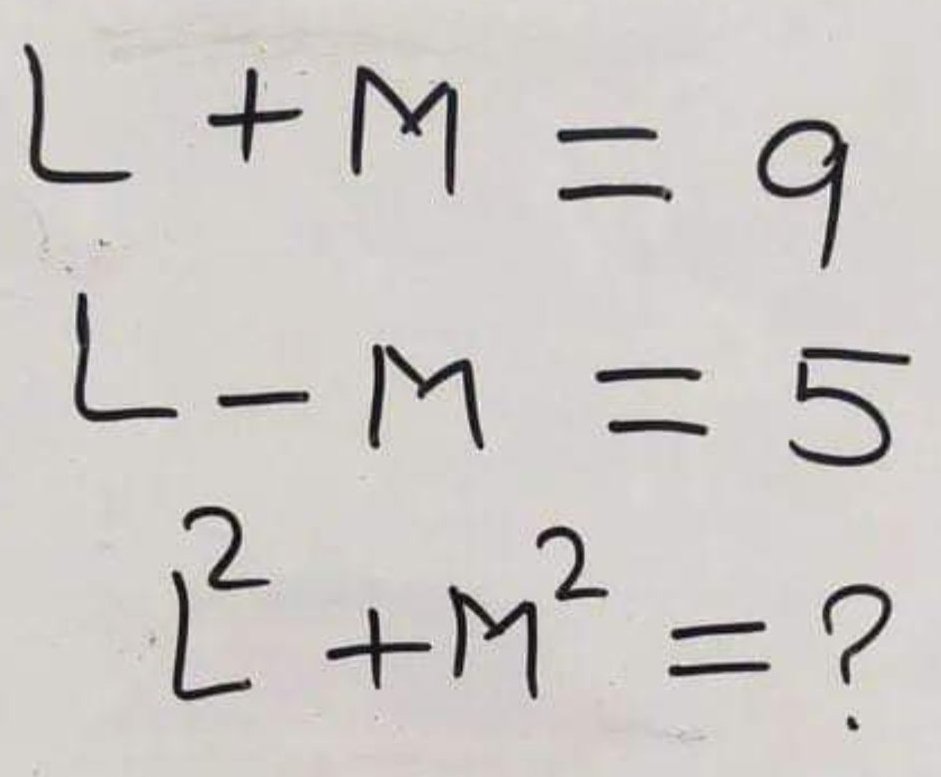 L + M = 9
L - M = 5
L² + M² = ?